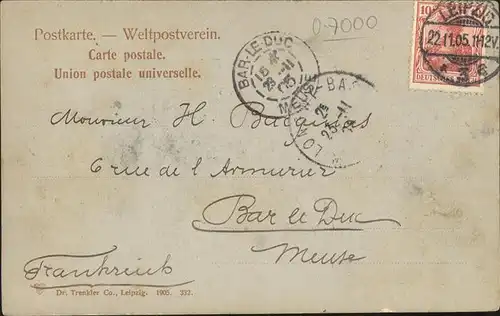 0-7000
Postkarte. — Weltpostverein.
Carte postale.
Union postale universelle.
LEIPZIG
22.11.05.11-12V.
10
DEUTSCHES
BAR-LE-DUC
MEUSE
Monsieur H.
6 rue de l'Armurier
Bar le Duc
Meuse
Frankreich
Dr. Trenkler Co., Leipzig. 1905. 232.